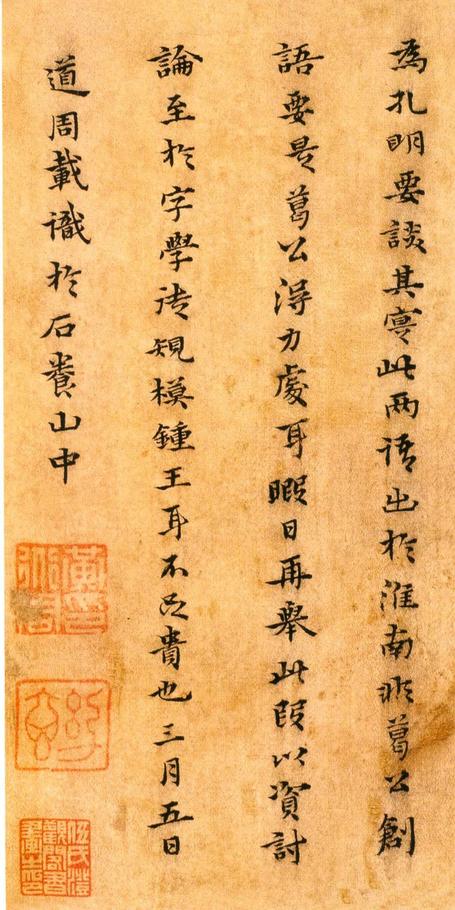 為孔明要談其實此兩語出於淮南非葛公創
語要是葛公得力處耳暇日再舉此段以資討
論至於字學規模鍾王耳不足貴也三月五日
道周載識於石養山中